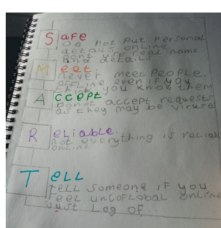 SAFE
Do not put personal
details online
name
and details
Meet
meet people
even if you
you know them
ACCEPT
Do not accept request
as they may be viruses
RELIABLE
not everything is reliab
online
TELL
TELL someone if you
feel uncoflobal online
Just Log of..